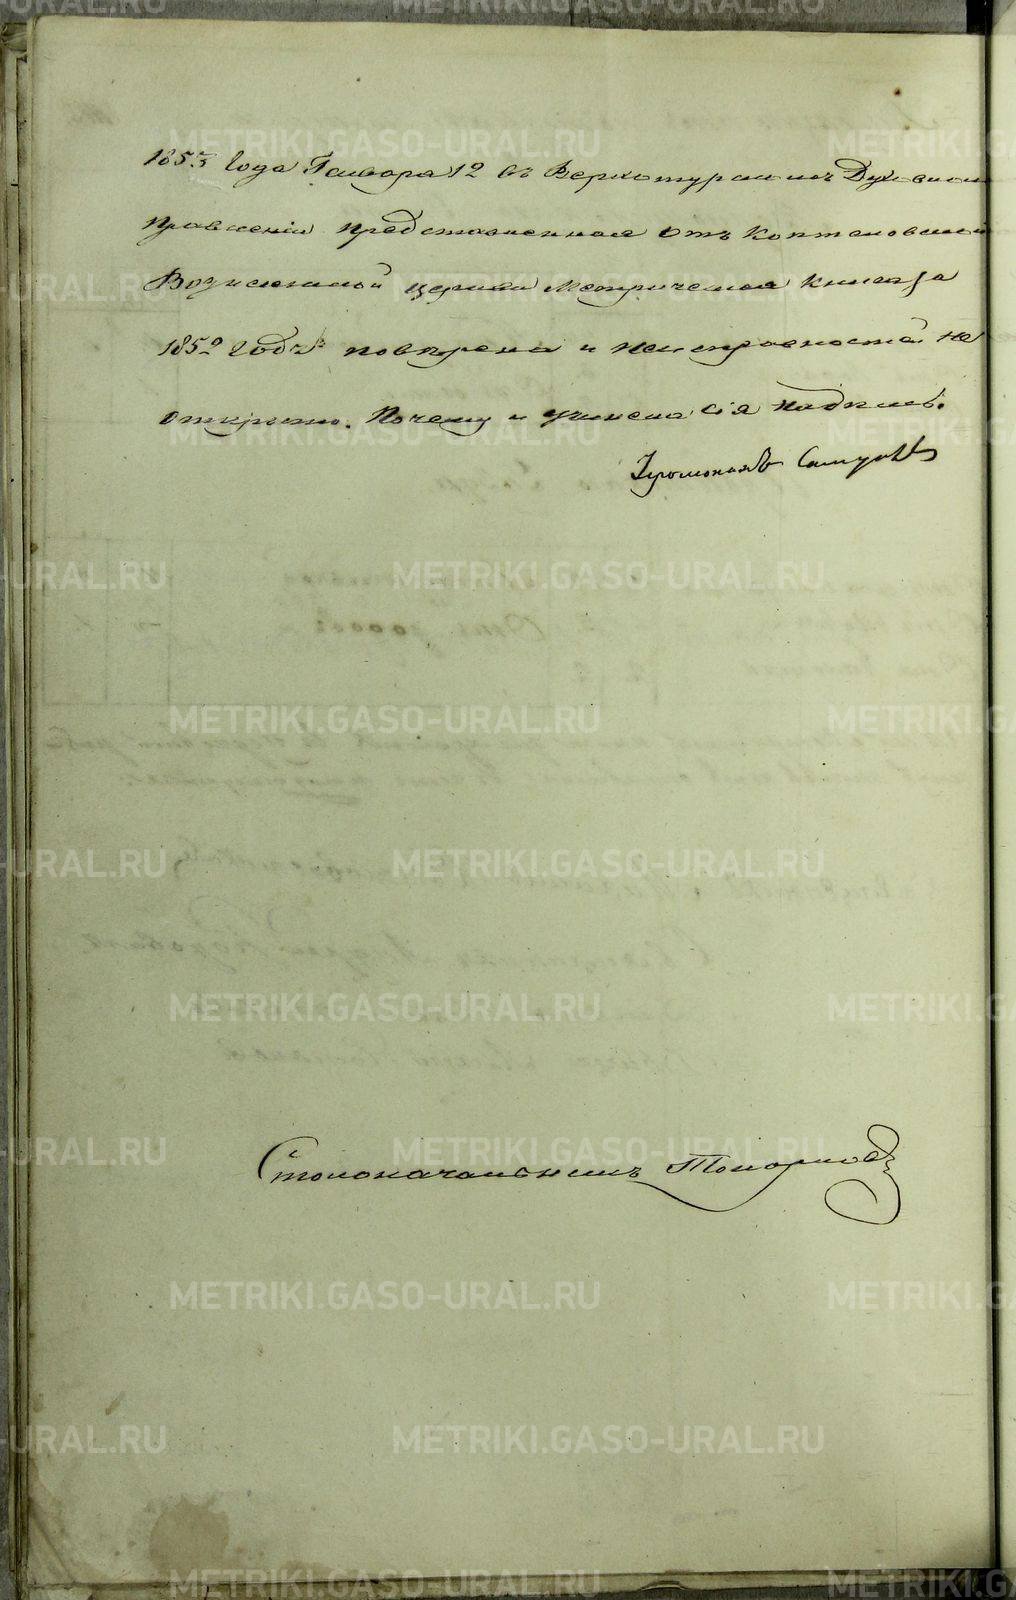 1853 Года Генваря 12 въ Верхотурскомъ Духовном
Правленіи представленная отъ Коптеловской
Вознесенской церкви Метрическая книга за
1852 годъ повѣрена и неисправностей не
открыто. Почему и учинена сія надпись.
Іеромонахъ
Столоначальникъ Топорковъ
METRIKI.GASO-URAL.RU